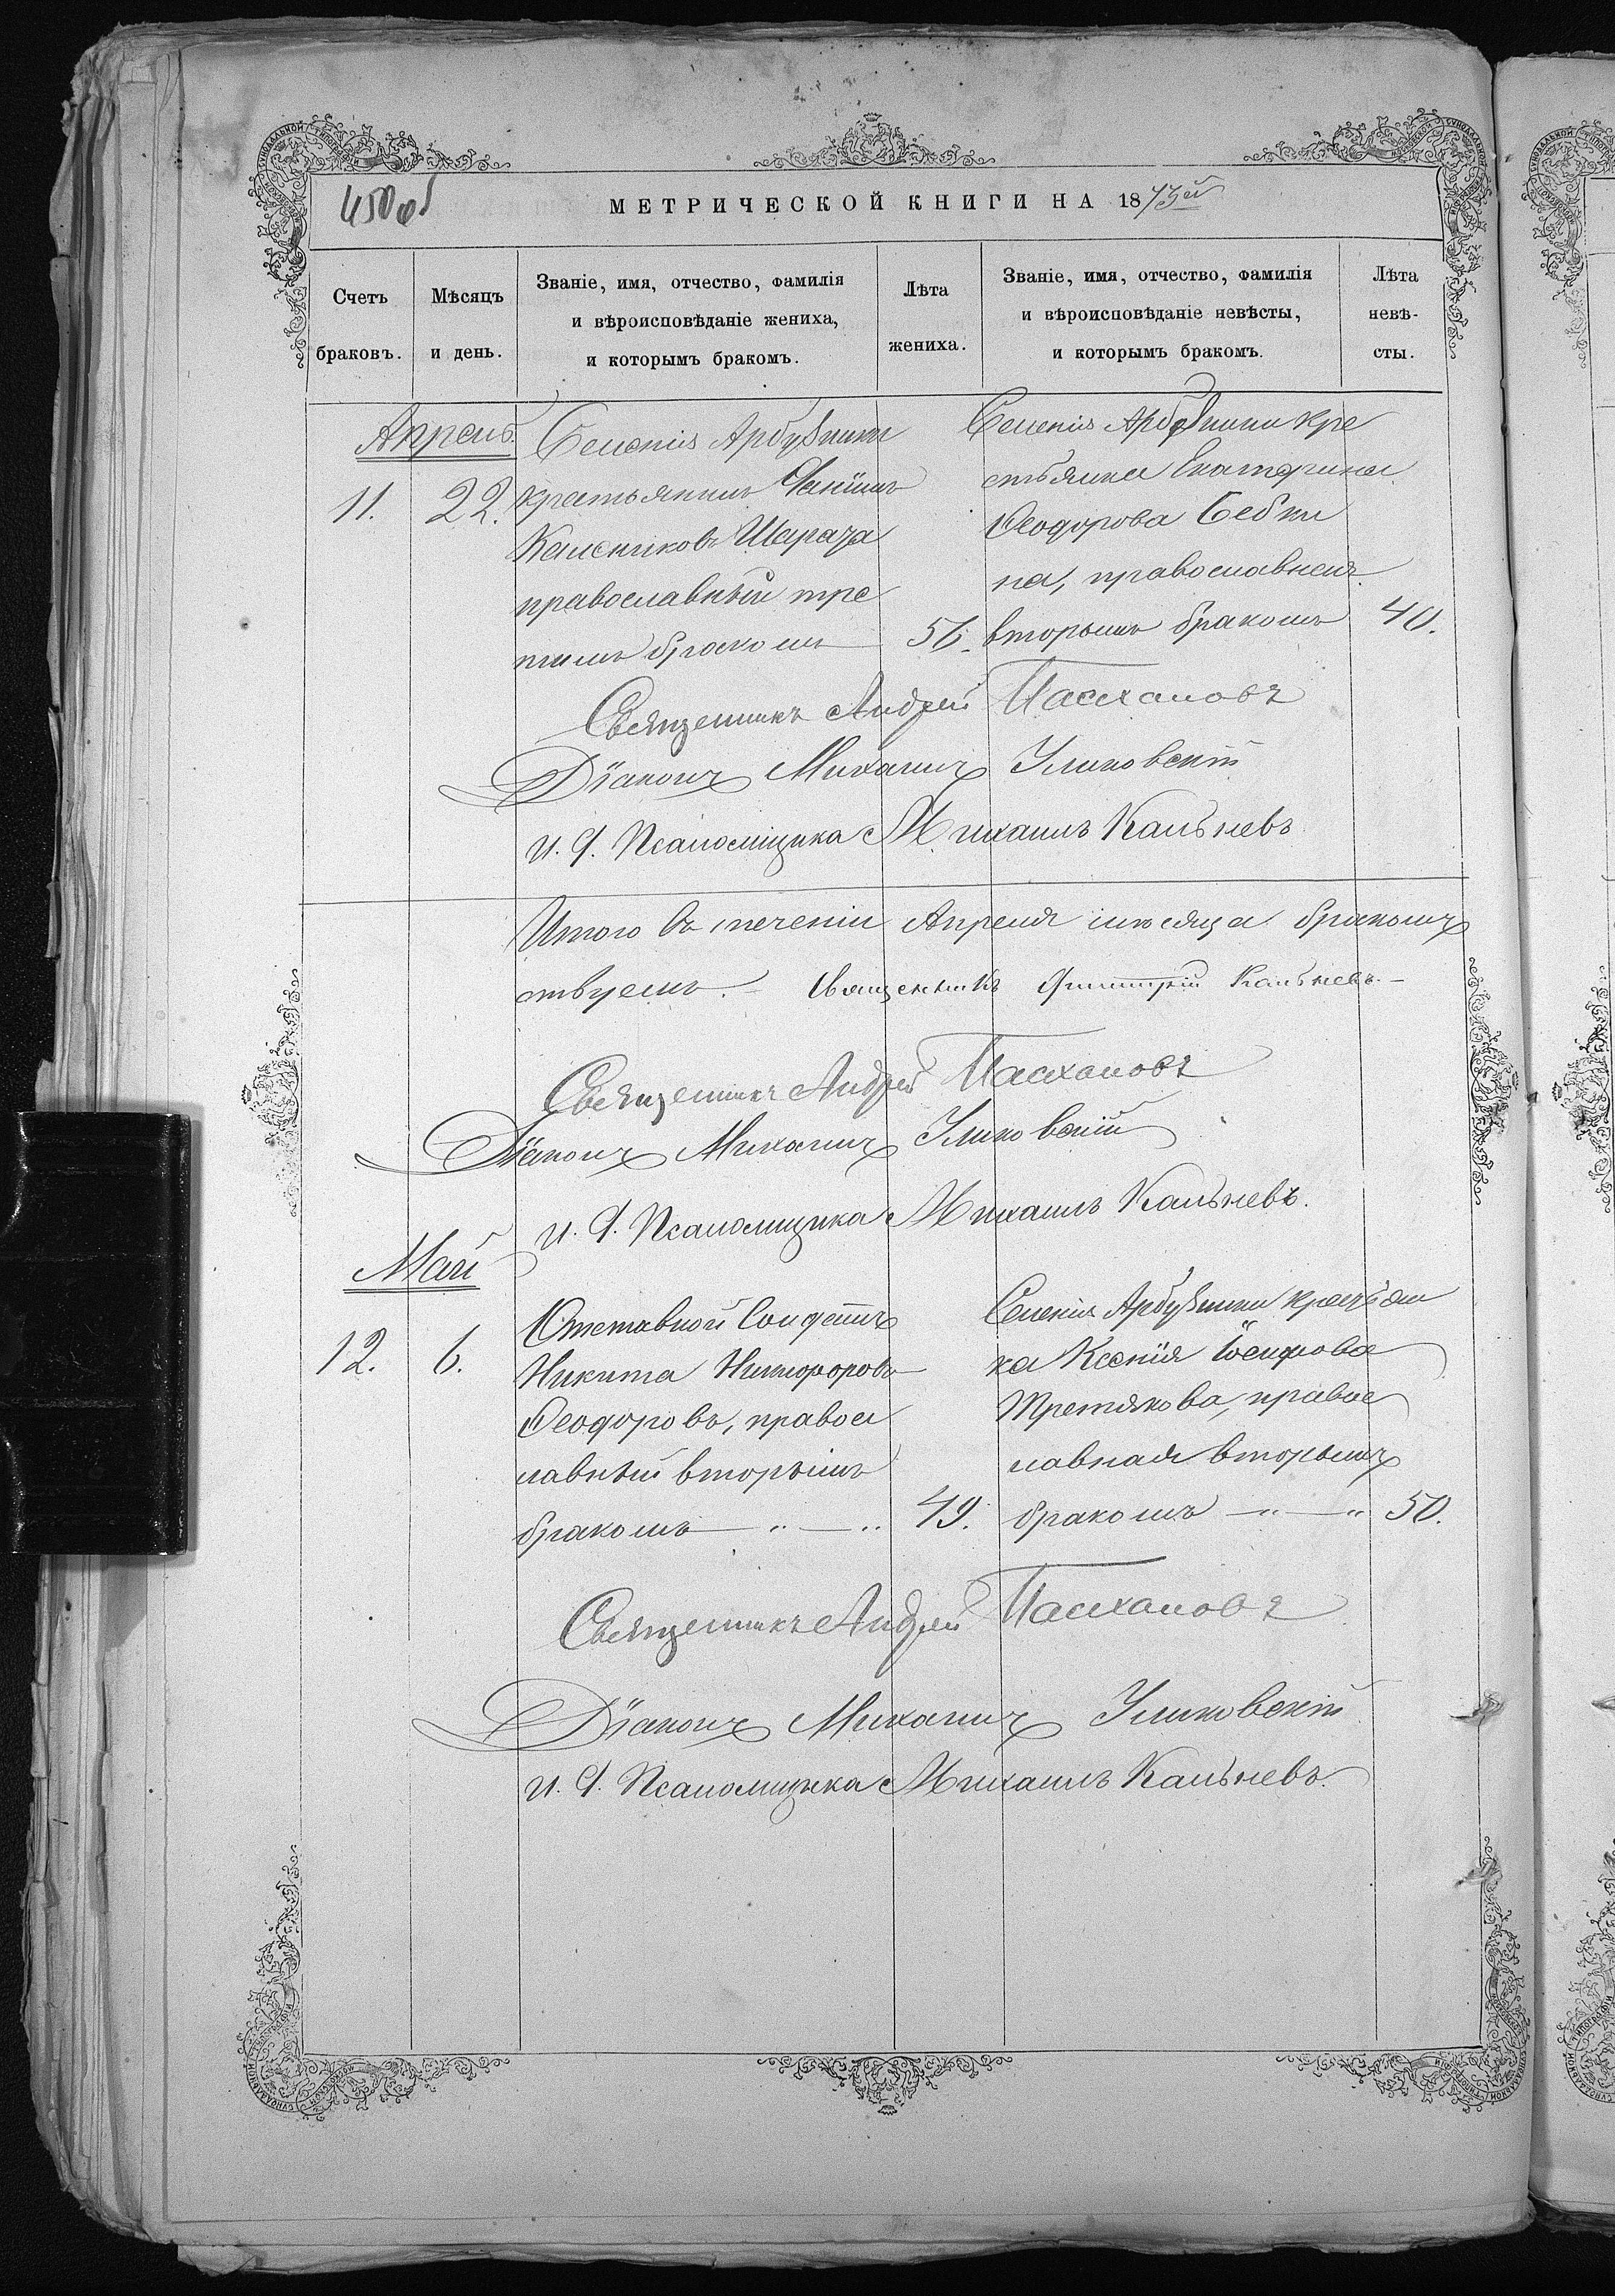 450 об
МЕТРИЧЕСКОЙ КНИГИ НА 1873ей
Счетъ браковъ.
Мѣсяцъ и день.
Званіе, имя, отчество, фамилія
и вѣроисповѣданіе жениха,
и которымъ бракомъ.
Лѣта жениха.
Званіе, имя, отчество, фамилія
и вѣроисповѣданіе невѣсты,
и которымъ бракомъ.
Лѣта невѣ-
сты.
Апрель.
11. 22.
Селенія Арбузинки
крестьянинъ
Калениковъ
православный тре
тимъ бракомъ 56.
Селенія Арбузинки кре
стьянка Екатерина
Ѳеодорова
на, православная
вторымъ бракомъ 40.
Священникъ Андрей Пасхаловъ
Діаконъ Михаилъ
И. д. Псаломщика Михаилъ Кальневъ
Итого въ теченіи Апреля мѣсяца бракомъ
ствуемъ. Священникъ Димитрій Кальневъ.
Священникъ Андрей Пасхаловъ
Діаконъ Михаилъ
И. д. Псаломщика Михаилъ Кальневъ.
Май
12. 6.
Отставной Солдатъ
Никита Никифоровъ
Ѳеодоровъ, правос
лавный вторымъ
бракомъ — „ — „ 49.
Селенія Арбузинки крестьян
ка Ксенія Іосифова
Третякова, правос
лавная вторымъ
бракомъ — „ — „ 50.
Священникъ Андрей Пасхаловъ
Діаконъ Михаилъ
И. д. Псаломщика Михаилъ Кальневъ.